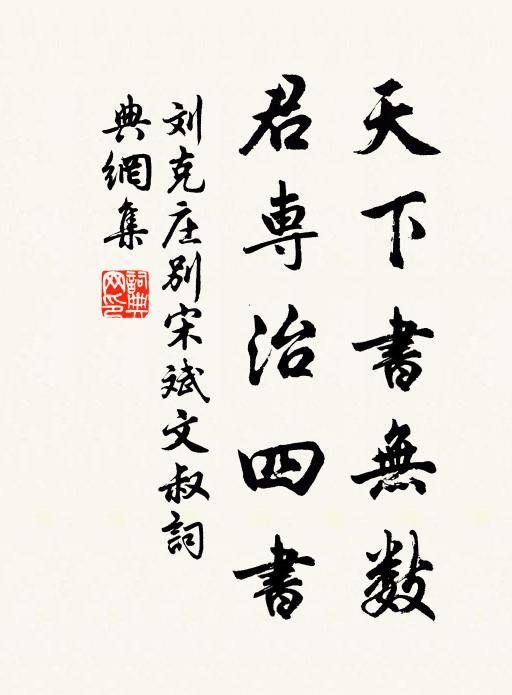 天下書無数
君専治四書
刘克庄别宋斌文叔詞
典網集
詞典网印